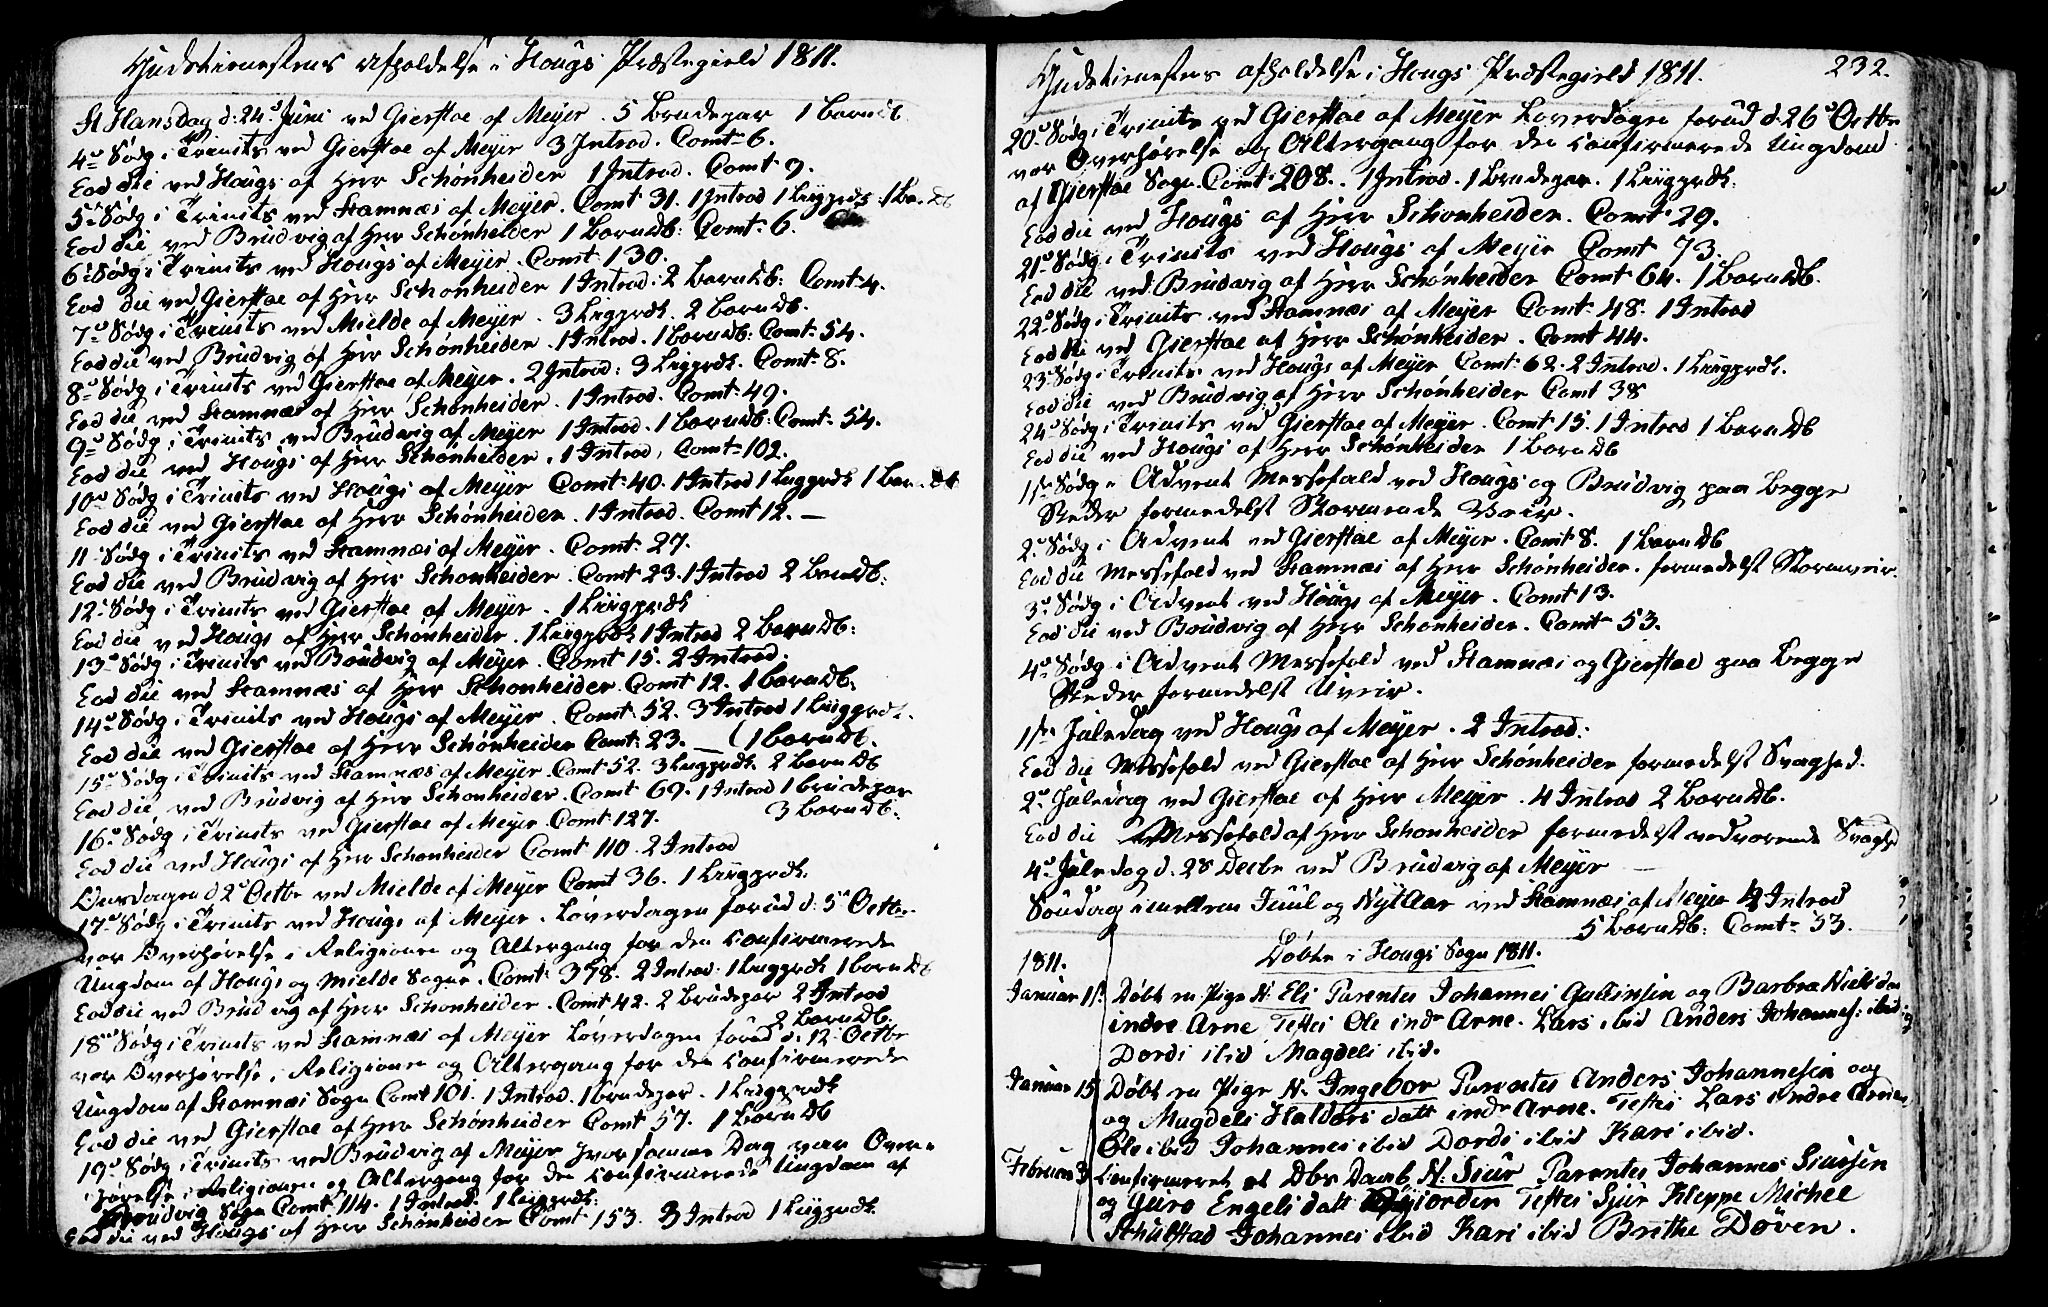 Gudstienestens Afholdelse i Hougs Præstegield 1811.
St Hansdag d: 24d Juni ved Gierstae af Meyer. 5 Brudepar 1 Barndb
4de Sødg i Trinits ved Gierstae af Meyer 3 Introd. Comt 6.
Eod die ved Hougs af Herr Schønheider 1 Introd. Comt 9.
5te Sødg i Trinits ved Stamnæs af Meyer. Comt 31. 1 Introd 1 Liigprdk: 1 Bar. Db
Eod die ved Brudvig af Herr Schønheider 1 Barndb: Comt: 6.
6te Sødg i Trinits ved Hougs af Meyer. Comt 130.
Eod die ved Gierstae af Herr Schønheider 1 Introd: 2 Barndb: Comt: 4.
7de Sødg i Trinits ved Mielde af Meyer. 3 Liigprdk. 2 Barndb.
Eod die ved Brudvig af Herr Schønheider. 1 Introd. 1 Barndb: Comt: 54.
8de Sødg i Trinits ved Gierstae af Meyer. 2 Introd: 3 Liigprdk. Comt: 8.
Eod die ved Stamnæs af Herr Schønheider. 1 Introd. Comt: 49.
9de Sødg i Trinits ved Brudvig af Meyer 1 Introd. 1 Barndb: Comt: 54.
Eod die ved Hougs af Herr Schønheider. 1 Introd, Comt: 102.
10de Sødg i Trinits ved Hougs af Meyer Comt: 40. 1 Introd 1 Liigprdk 1 Bar. Db
Eod die ved Gierstae af Herr Schønheider. 1 Introd. Comt 12. —
11 Sødg i Trinits ved Stamnæs af Meyer. Comt: 27.
Eod die ved Brudvig af Herr Schønheider. Comt 23. 1 Introd 2 Barndb:
12te Sødg i Trinits ved Gierstae af Meyer. 1 Liigprdk
Eod die ved Hougs af Herr Schønheider. 1 Liigprdk 1 Introd 2 Barndb:
13de Sødg i Trinits ved Brudvig af Meyer. Comt 15. 2 Introd.
Eod die ved Stamnæs af Herr Schønheider. Comt 12. 1 Barndb:
14de Sødg i Trinits ved Hougs af Meyer. Comt: 52. 3 Introd 1 Liigprdk.
Eod die ved Gierstae af Herr Schønheider Comt: 23. — (1 Barndb.
15de Sødg i Trinits ved Stamnæs af Meyer. Comt 52. 3 Liigprdk. 2 Barndb
Eod die ved Brudvig af Herr Schønheider. Comt 69. 1 Introd 1 Brudepar
16de Sødg i Trinits ved Gierstae af Meyer. Comt 127. 3 Barndb:
Eod die ved Hougs af Herr Schønheider Comt 110. 2 Introd
Onsdagen d 2d Octbr ved Mielde af Meyer Comt 36. 1 Liigprdk.
17de Sødg i Trinits ved Hougs af Meyer. Løverdagen forud d: 5d Octbr.
var Overhørelse i Religionen og Altergang for den Confirmerede
Ungdom af Hougs og Mielde Sogne. Comt: 378. 2 Introd: 1 Liigprdk 1 Barndb
Eod die ved Brudvig af Herr Schønheider. Comt, 42. 2 Brudepar 2 Introd
2 Barndb.
18de Sødg i Trinits ved Stamnæs af Meyer Løverdagen forud d: 12 Octbr
var Overhørelse, i Religionen og Altergang for den Confirmerede
Ungdom af Stamnæs Sogn Comt 101. 1 Introd. 1 Brudepar. 1 Liigprdk
Eod die ved Gierstae af Herr Schønheider Comt 57. 1 Barndb
19de Sødg i Trinits ved Brudvig af Meyer hvor samme Dag var Over=
hørelse i Religionen og Altergang for den Confirmerede Ungdom af
Brudvig Sogn Comt 114. 1 Introd. 1 Liigprdk:
Eod die ved Hougs af Herr Schønheider Comt 153. 3 Introd 1 Liigprdk.
Gudstienestens afholdelse i Hougs Præstegield 1811. 232.
20de Sødg i Trinits ved Gierstae af Meyer Løverdagen forud d: 26d Octbr
var Overhørelse og Altergang for den Confirmerede Ungdom
af Gierstae Sogn. Comt: 208. 1 Introd. 1 Brudepar. 1 Liigprdk:
Eod die ved Hougs af Herr Schønheider. Comt: 29.
21de Sødg i Trinits ved Hougs af Meyer Comt 73.
Eod die ved Brudvig af Herr Schønheider Comt 64. 1 Barndb.
22de Sødg i Trinits ved Stamnæs af Meyer Comt: 48. 1 Introd
Eod die ved Gierstae af Herr Schønheider. Comt 44.
23de Sødg i Trinits ved Hougs af Meyer Comt: 62. 2 Introd. 1 Liigprdk.
Eod die ved Brudvig af Herr Schønheider Comt 38
24de Sødg i Trinits ved Gierstae af Meyer. Comt: 15. 1 Introd 1 Barndb
Eod die ved Hougs af Herr Schønheider 1 Barndb
1ste Sødg i Advent Messefald ved Hougs og Brudvig paa begge
Steder formedelst Stormende Veir.
2de Sødg i Advent ved Gierstae af Meyer. Comt 8. 1 Barndb
Eod die Messefald ved Stamnæs af Herr Schønheider. formedelst Stormveir.
3de Sødg i Advent ved Hougs af Meyer. Comt 13.
Eod die ved Brudvig af Herr Schønheider. Comt 53.
4de Sødg i Advent Messefald ved Stamnæs og Gierstae paa begge
Steder formedelst Uveir.
1ste Juledag ved Hougs af Meyer. 2 Introd:
Eod die Messefald ved Gierstae af Herr Schønheider formedelst Svaghed.
2de Juledag ved Gierstae af Herr Meyer. 4 Introd 2 Barndb.
Eod die Messefald af Herr Schønheider formedelst vedvarende Svaghd
4de Juledag d. 28 Decbr ved Brudvig af Meyer —
Søndag imellem Juul og NytAar ved Stamnæs af Meyer 4 Introd
5 Barndb: Comt: 53.
1811. Døbte i Hougs Sogn 1811.
Januar 1ste Døbt en Pige N: Eli Parentes Johannes Gullinsen og Barbra Nielsda
indre Arne Testes Ole indr Arne. Lars ibid Anders Johannes: ibid
Dordi ibid Magdeli ibid.
Januar 15 Døbt en Pige N. Ingebor Parentes Anders Johannesen og
og Magdeli Haldors datt indr Arne. Testes Lars indre Arne
Ole ibid Johannes ibid Dordi ibid Kari ibid.
Februar 3 Confirmeret et Dbr Daab N: Siur Parentes Johannes Siursen
og Guro Engels datt Giorden Testes Siur Kleppe Michel
Schulstad Johannes ibid Kari ibid Brithe Døven.